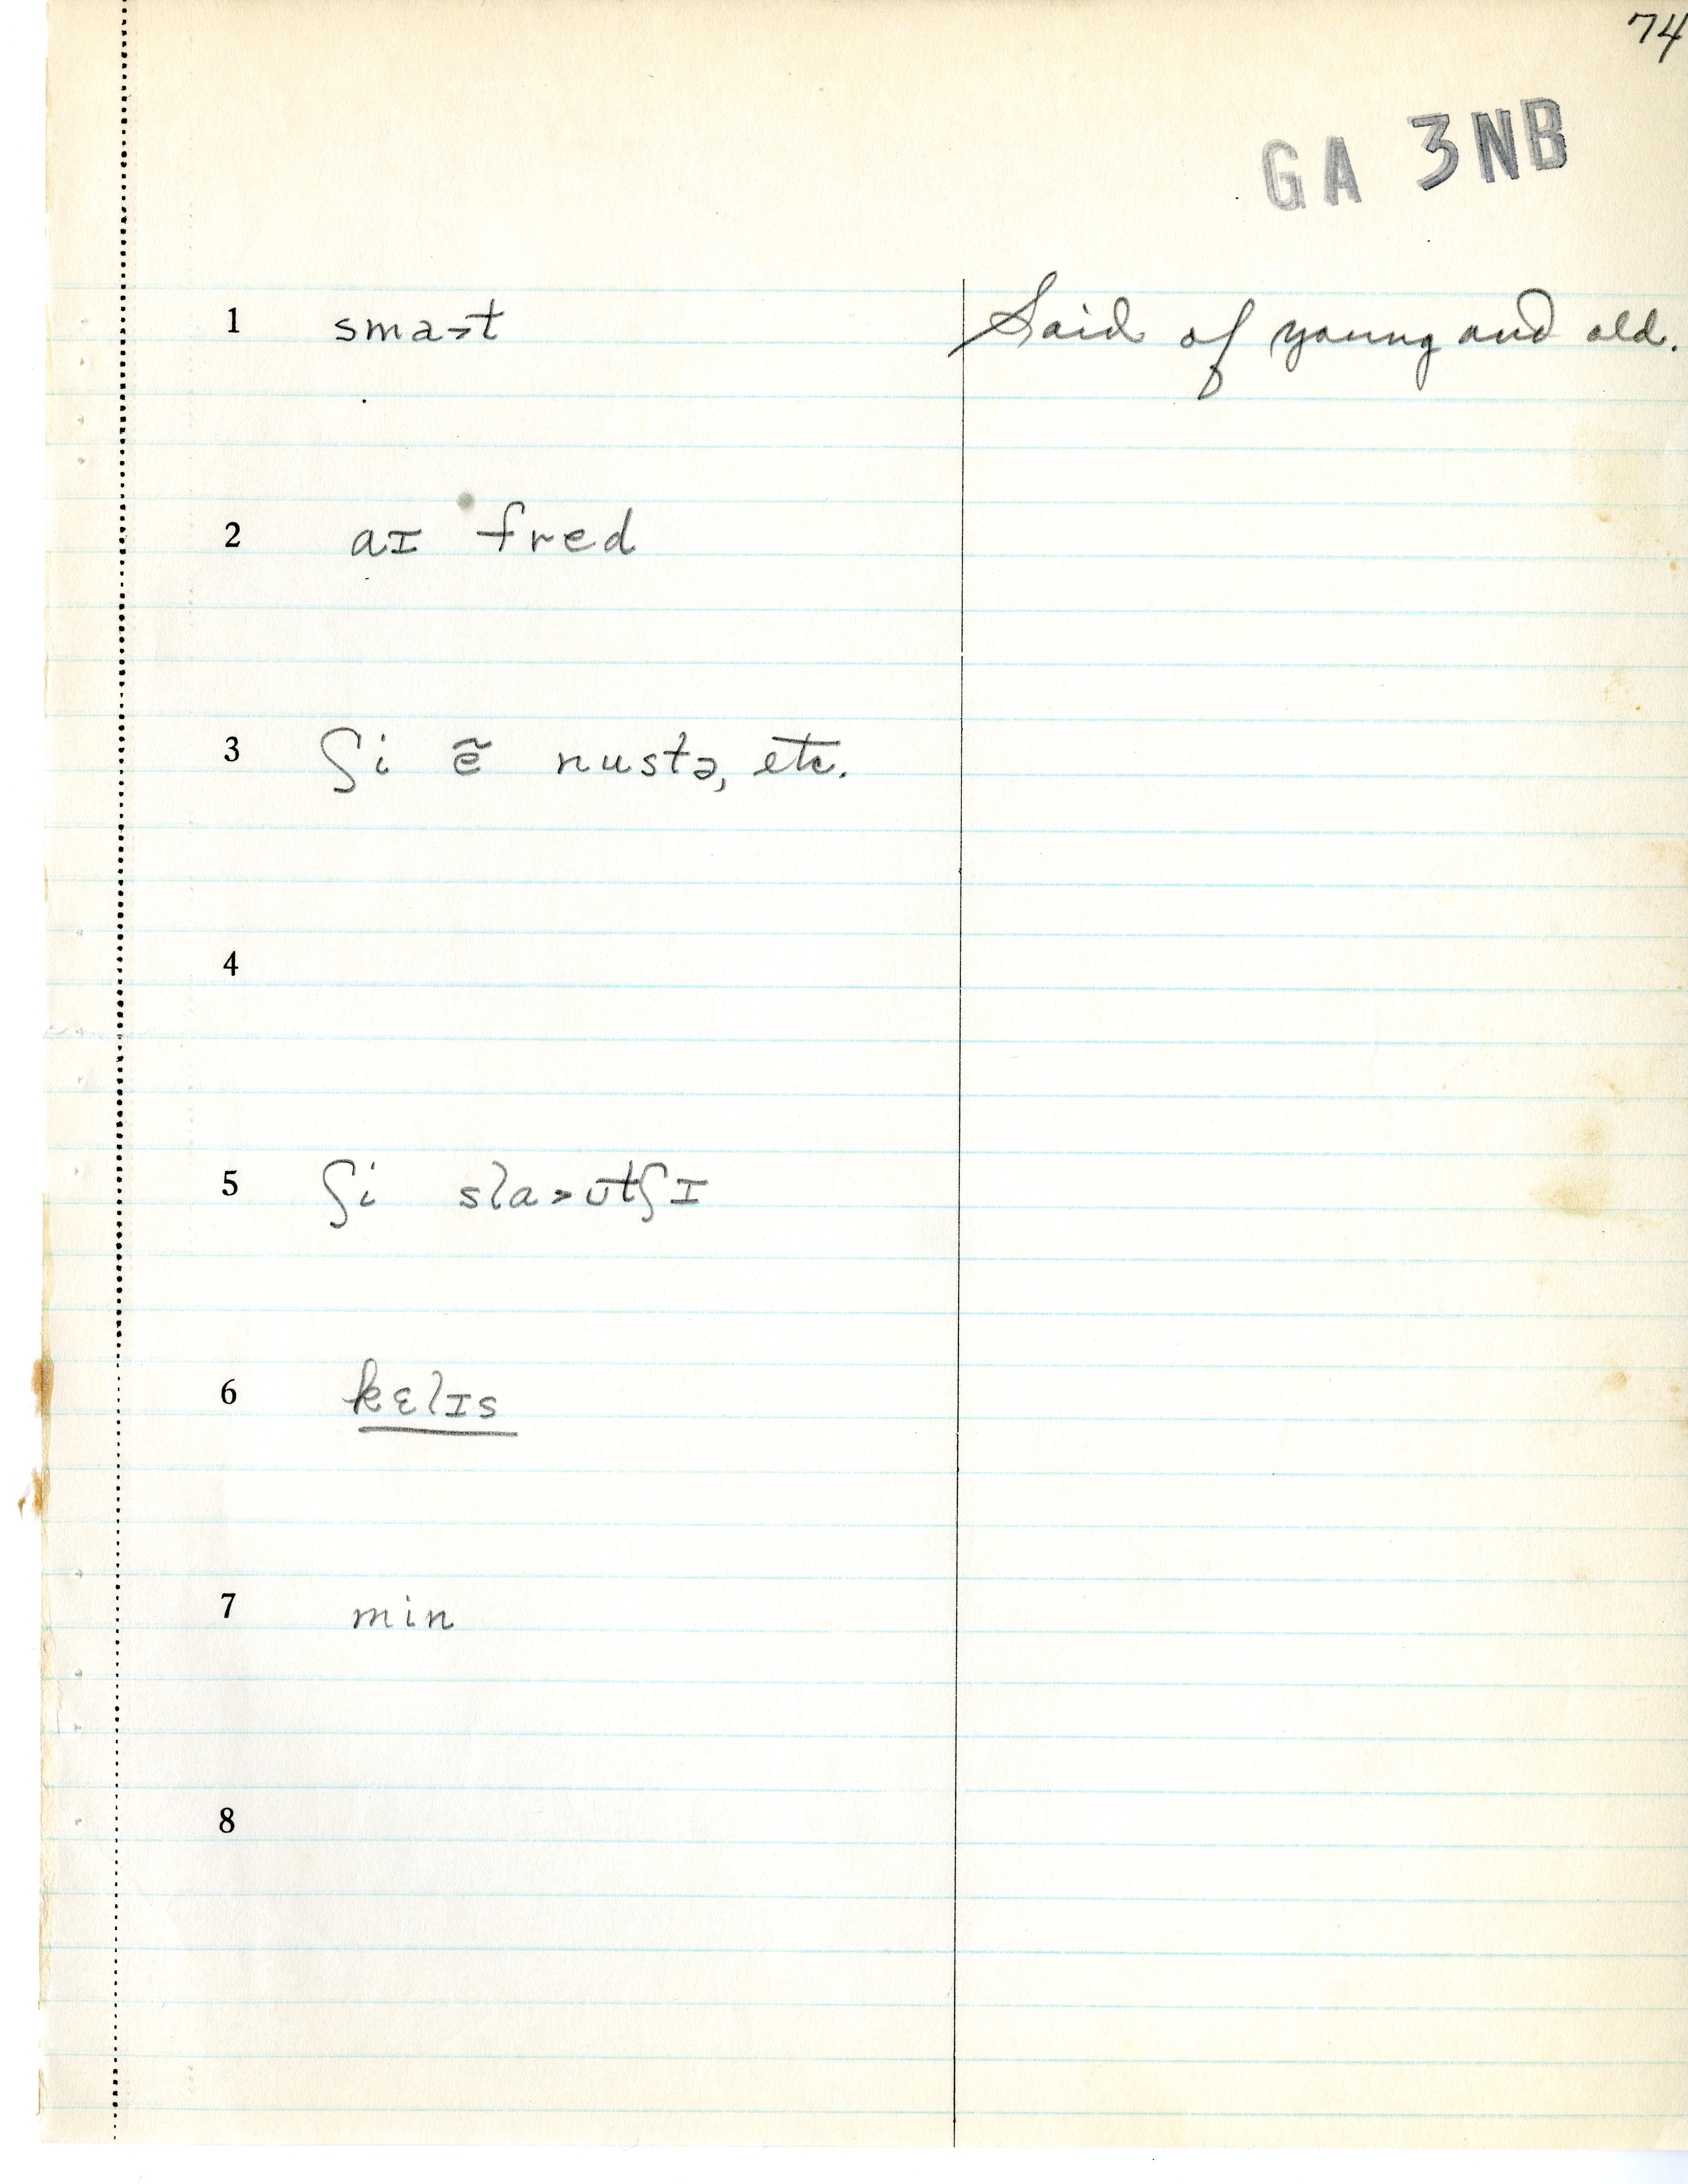 74
GA 3NB
1 sma˃t Said of young and old.
2 aɪ fred
3 ʃi ẽ nustə, etc.
4
5 ʃi sla˃ʊtʃɪ
6 kɛlɪs
7 min
8